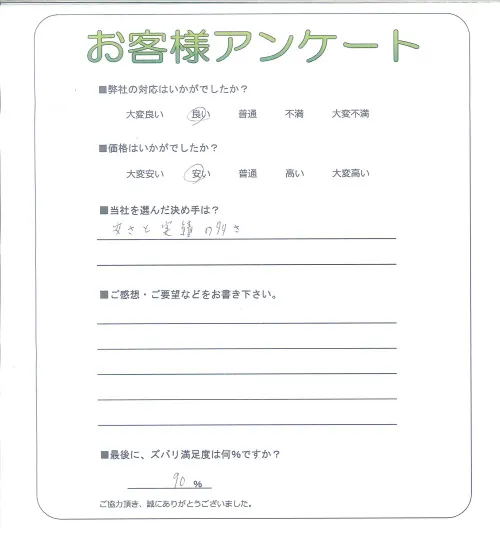 お客様アンケート
■弊社の対応はいかがでしたか？
大変良い 良い 普通 不満 大変不満
■価格はいかがでしたか？
大変安い 安い 普通 高い 大変高い
■当社を選んだ決め手は？
安さと実績の多さ
■ご感想・ご要望などをお書き下さい。
■最後に、ズバリ満足度は何%ですか？
90 %
ご協力頂き、誠にありがとうございました。